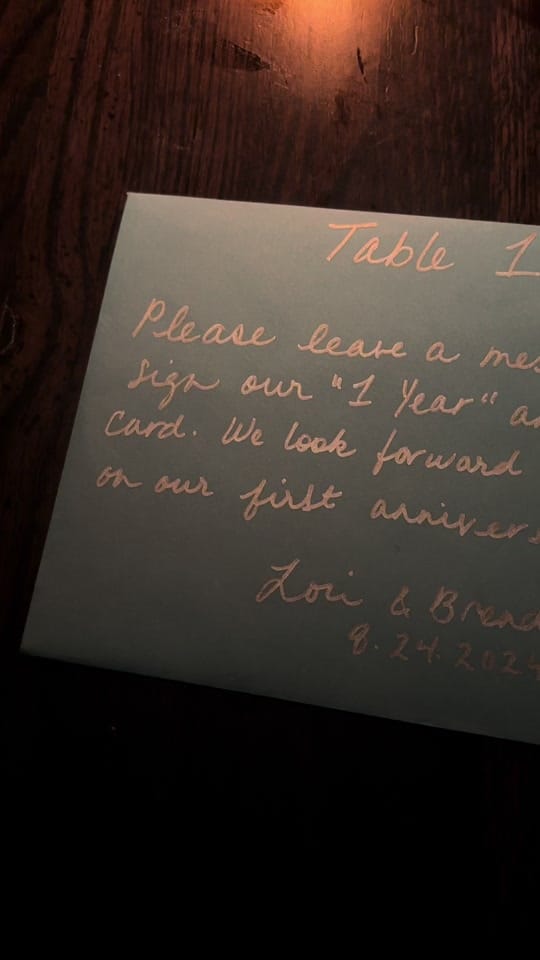 Table 1
Please leave a mes
sign our "1 Year" an
card. We look forward
on our first annivers
Lori & Brend
8.24.2024